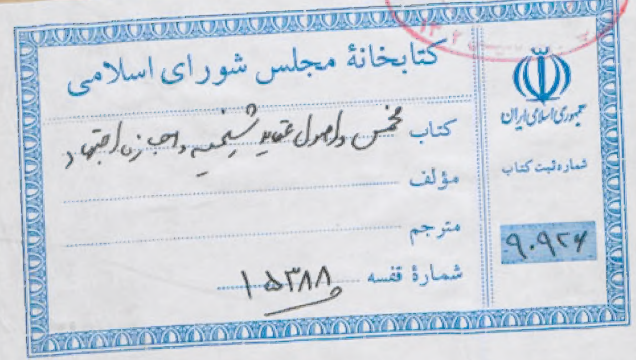 کتابخانهٔ مجلس شورای اسلامی
کتاب مخمس و اصول عقاید شیخیه و
مؤلف
مترجم
شمارهٔ قفسه ۱۵۳۸۸
جمهوری اسلامی ایران
شماره ثبت کتاب
۹۰۹۲۶